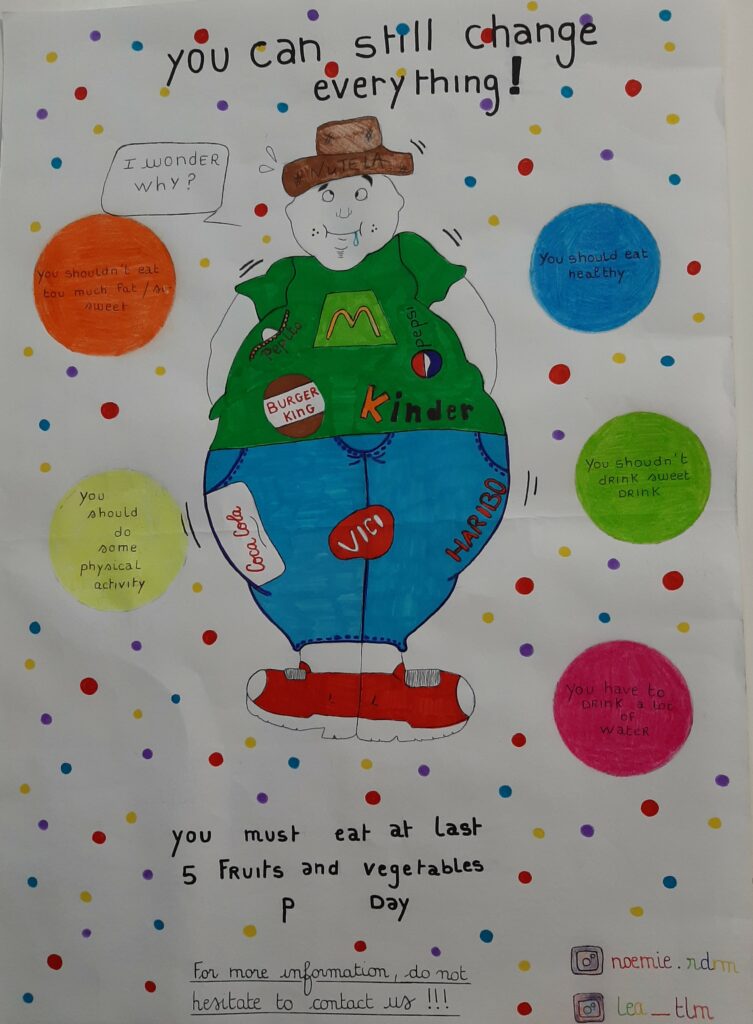 you can still change
everything!
I WONDER
WHY?
NUTELA
you shouldn't eat
too much fat/su
sweet
You should eat
healthy
M
Pepito
pepsi
BURGER
KING
Kinder
you
should
do
some
physical
activity
Coca Cola
VICI
HARIBO
You shoudn't
DRINK sweet
DRINK
you have to
DRINK a lot
of
water
you must eat at last
5 Fruits and vegetables
P Day
For more information, do not
hesitate to contact us !!!
noemie.rdrm
lea_tlm